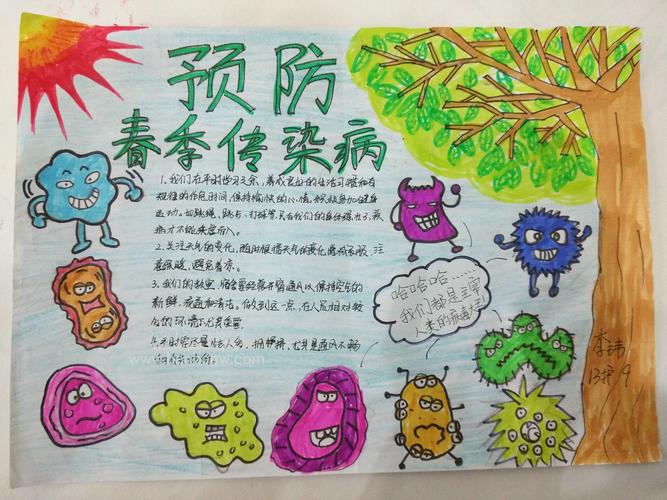 预防
春季传染病
1.我们在平时学习之余,养成良好的生活习惯和有
规律的作息时间,保持愉快的心情,积极参加健身
运动。如跳绳、跑步、打球等,只有我们的身体练好了,疾
病才不能乘虚而入。
2.关注天气的变化,随时根据天气的变化增减衣服,注
意保暖,避免着凉。
3.我们的教室、宿舍要经常开窗通风,以保持空气的
新鲜、流通和清洁,做到这一点,在人员相对较
多的环境下尤其重要。
人多、拥挤、尤其是通风不畅
哈哈哈……
我们都是主要
人类的病毒
李玮
13护9